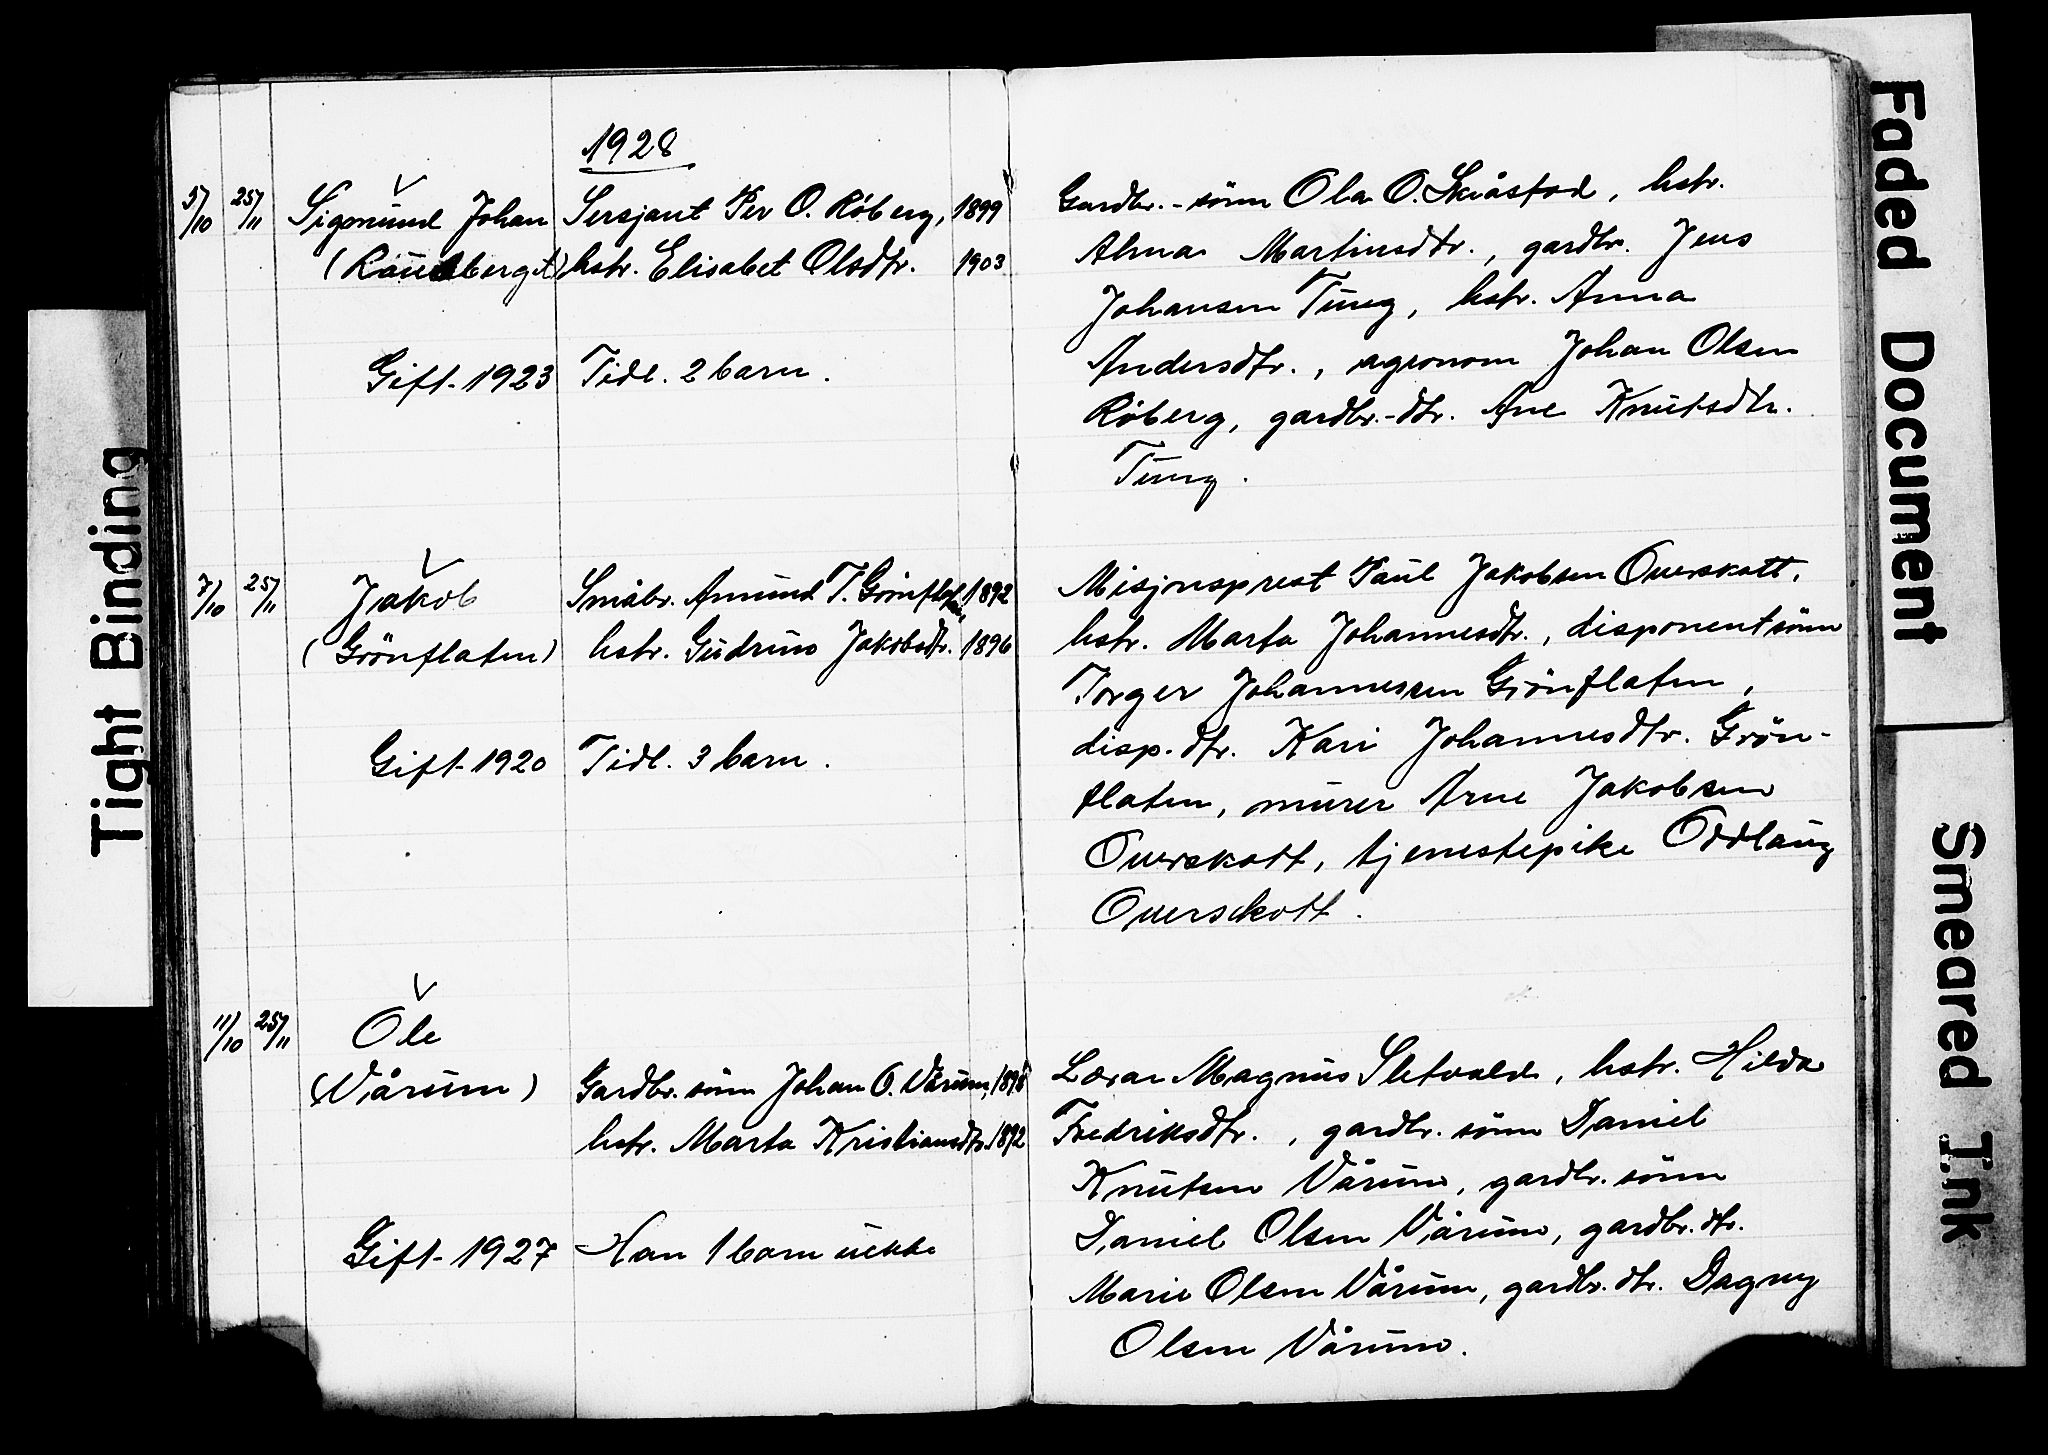 1928
5/10 25/11 Sigmund Johan Sersjant Per O. Röberg, 1899
hstr. Elisabet Olsdtr. 1903
Gift 1923 Tidl. 2 barn.
7/10 25/11 Jakob Småbr. Amund T. Grönflaten, 1892
(Grönflaten) hstr. Gudrun Jakobsdtr. 1896
Gift 1920 Tidl. 3 barn.
11/10 25/11 Ole
(Vårum) Gardbr. sönn Johan O. Vårum, 1898
hstr. Marta Kristiansdtr. 1892
Gift 1927 Han 1 barn uekte
Gardbr.-sönn Ola O. Skråstad, hstr.
Alma Martinsdtr., gardbr. Jens
Johansen Tung, hstr. Anna
Andersdtr., agronom Johan Olsen
Röberg, gardbr.-dtr. Ane Knutsdtr.
Tung.
Misjonsprest Paul Jakobsen Overskott,
hstr. Marta Johannesdtr., disponentsönn
Torger Johannessen Grönflaten,
disp.dtr. Kari Johannesdtr. Grön-
flaten, murer Arne Jakobsen
Overskott, tjenestepike Oddlaug
Overskott.
Lærar Magnus Sletvold, hstr. Hilda
Fredriksdtr., gardbr. sönn Daniel
Knutsen Vårum, gardbr. sönn
Daniel Olsen Vårum, gardbr. dtr.
Marie Olsen Vårum, gardbr. dtr. Dagny
Olsen Vårum.
Tight Binding
Faded Document
Smeared Ink